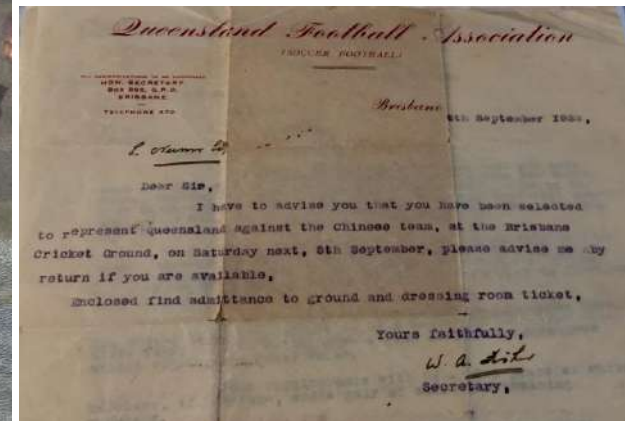 Queensland Football Association
(SOCCER FOOTBALL)
HON. SECRETARY
BOX 595, G.P.O.
BRISBANE
TELEPHONE 870
Brisbane
September
Dear Sir,
I have to advise you that you have been selected
to represent Queensland against the Chinese team, at the Brisbane
Cricket Ground, on Saturday next, 8th September, please advise me by
return if you are available,
Enclosed find admittance to ground and dressing room ticket,
Yours faithfully,
W. A.
Secretary,